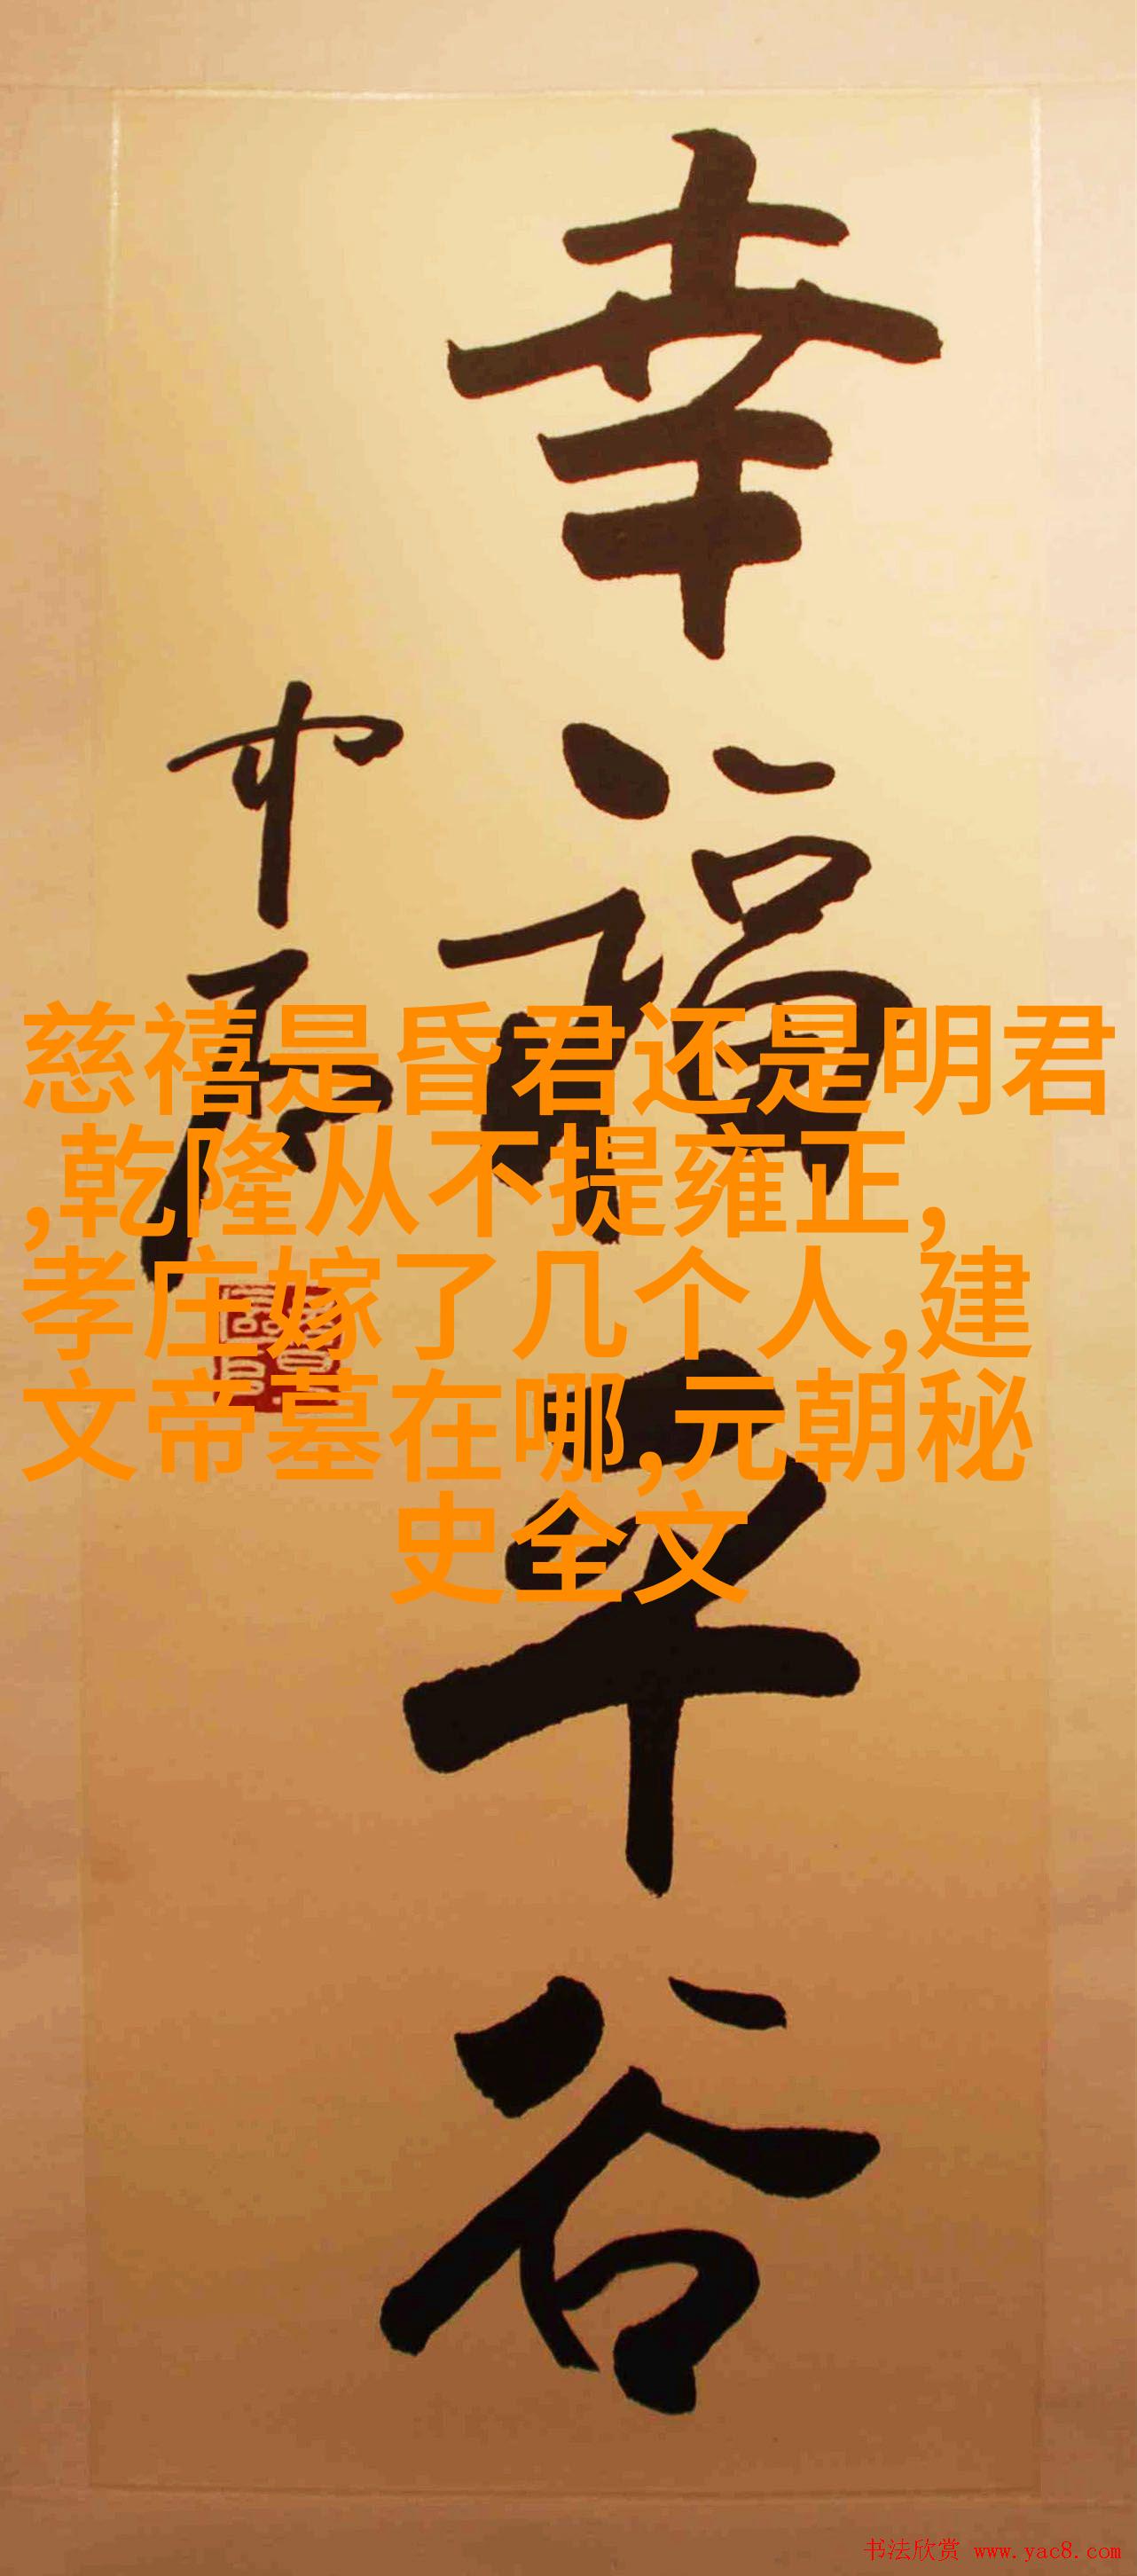 幸福平谷
慈禧是昏君还是明君
,乾隆从不提雍正,
孝庄嫁了几个人,建
文帝墓在哪,元朝秘
史全文
书法欣赏 www.yac8.com